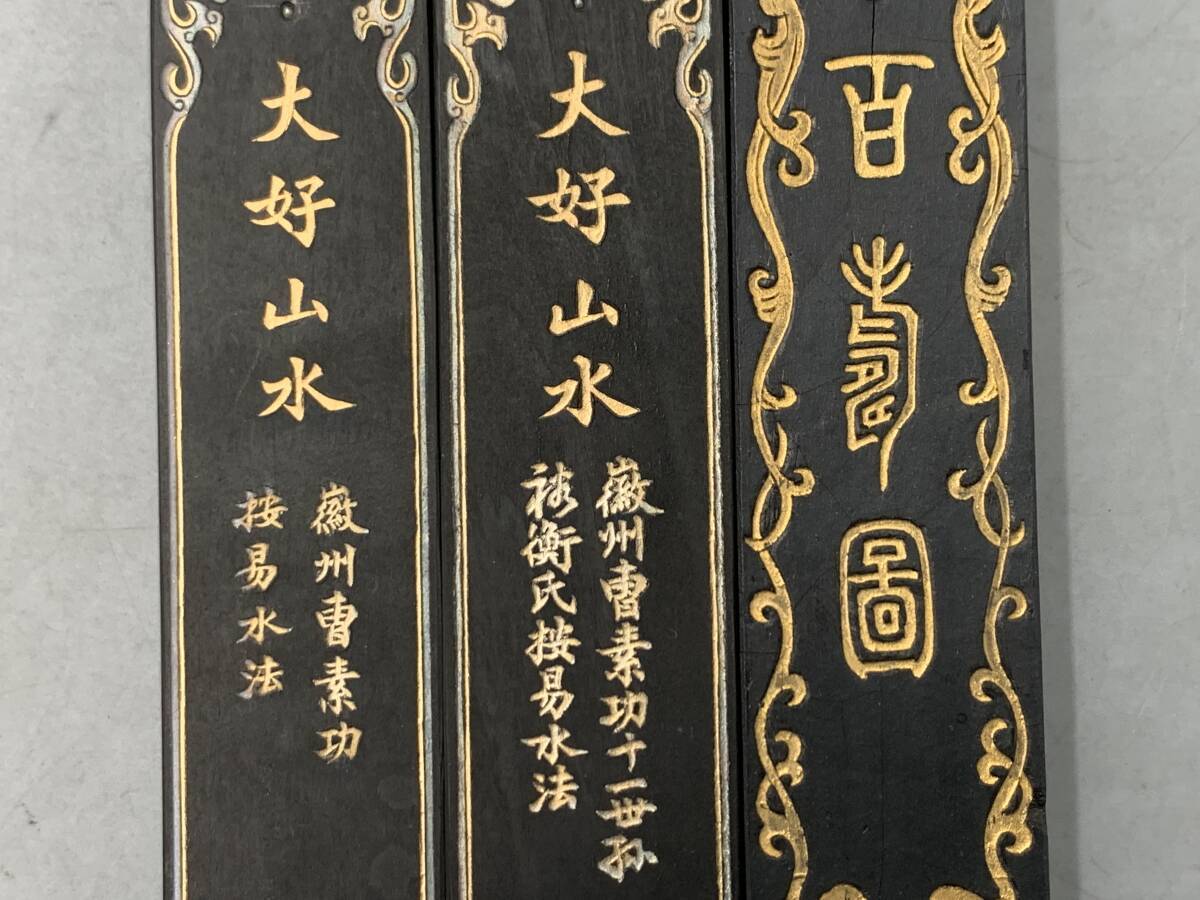 大好山水
徽州曹素功
按易水法
大好山水
徽州曹素功十一世孫
裕衡氏按易水法
百壽圖